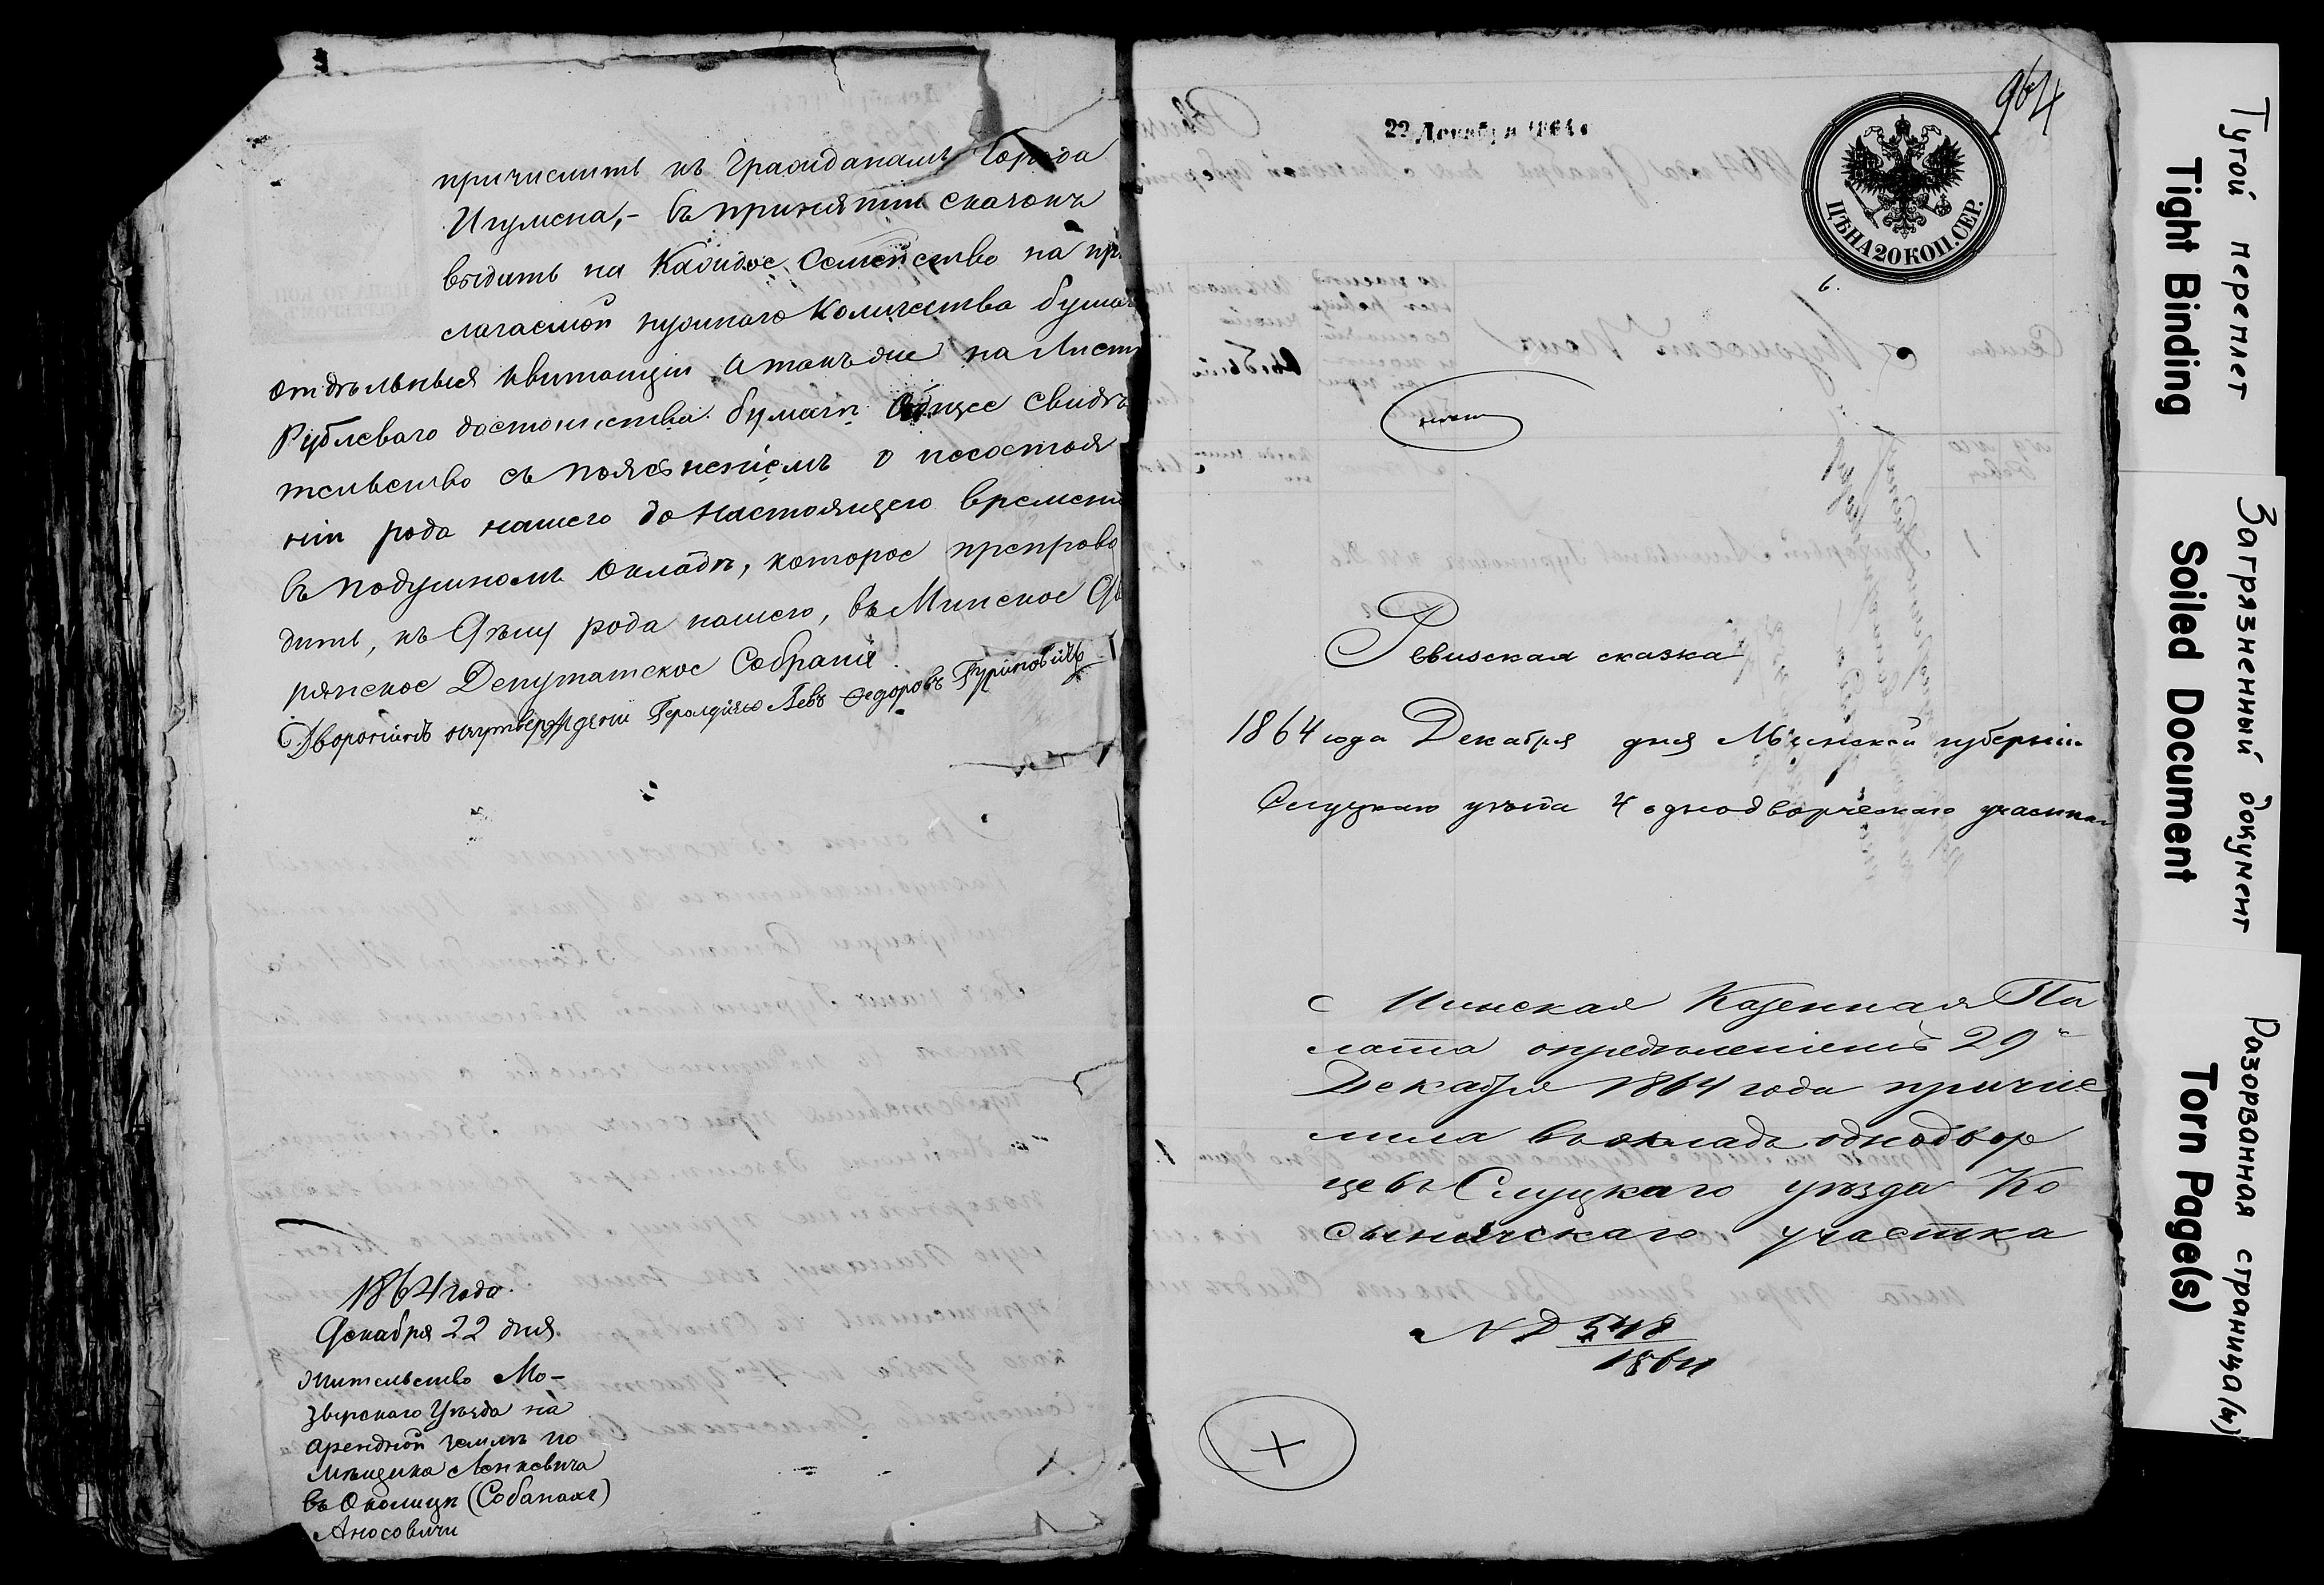 причислить къ Гражданамъ Города
Игумена,- въ принятіи сказокъ
выдать на Каждое Семейство на при
лагаемой нужнаго Количества бумаг
отдѣльныя квитанціи а такъ же на Листѣ
Рублеваго достоинства бумаги Общее Свидѣ
тельство съ поясненіемъ о несостоя
ніи рода нашего до настоящего времени
въ подушномъ окладѣ, которое препрово
дить, къ Дѣлу рода нашего, въ Минское Дво
рянское Депутатское Собраніе.
Дворянинъ неутвержденный Герольдіею Левъ Федоровъ Гуриновичъ
1864 года.
Декабря 22 дня.
жительство Мо-
зырскаго Уѣзда на
арендной землѣ по
мѣщика Ленкевича
въ Околицѣ (Собанахъ)
Аносовичи
964
22 Декабря 1864 г
ЦѢНА 20 КОП. СЕР.
6.
Ревизская сказка
1864 года Декабря дня Минской губерніи
Слуцкаго уѣзда 4 однодворческаго участка
Минская Казенная Па
лата опредѣленіемъ 29
Декабря 1864 года причис
лила въ окладъ однодвор
цевъ Слуцкаго уѣзда Ко
сынячскаго участка
№ Д 548
1864
Тугой переплет
Tight Binding
Загрязненный документ
Soiled Document
Разорванная страница(ы)
Torn Page(s)